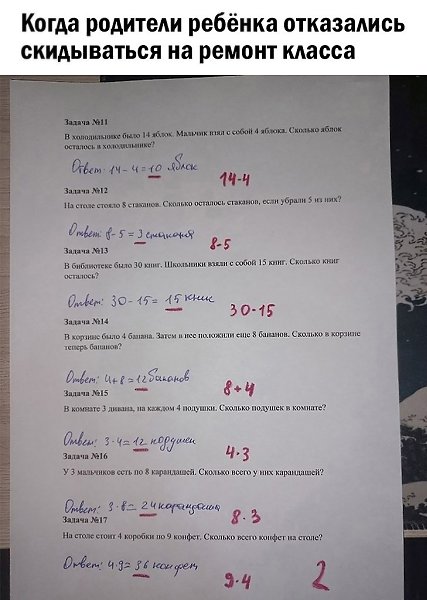 Когда родители ребёнка отказались
скидываться на ремонт класса
Задача №11
В холодильнике было 14 яблок. Мальчик взял с собой 4 яблока. Сколько яблок
осталось в холодильнике?
Ответ: 14-4=10 яблок
14-4
Задача №12
На столе стояло 8 стаканов. Сколько осталось стаканов, если убрали 5 из них?
Ответ: 8-5=3 стакана
8-5
Задача №13
В библиотеке было 30 книг. Школьники взяли с собой 15 книг. Сколько книг
осталось?
Ответ: 30-15=15 книг
30-15
Задача №14
В корзине было 4 банана. Затем в нее положили еще 8 бананов. Сколько в корзине
теперь бананов?
Ответ: 4+8=12 бананов
8+4
Задача №15
В комнате 3 дивана, на каждом 4 подушки. Сколько подушек в комнате?
Ответ: 3·4=12 подушек
4·3
Задача №16
У 3 мальчиков есть по 8 карандашей. Сколько всего у них карандашей?
Ответ: 3·8=24 карандаша
8·3
Задача №17
На столе стоит 4 коробки по 9 конфет. Сколько всего конфет на столе?
Ответ: 4·9=36 конфет
9·4
2